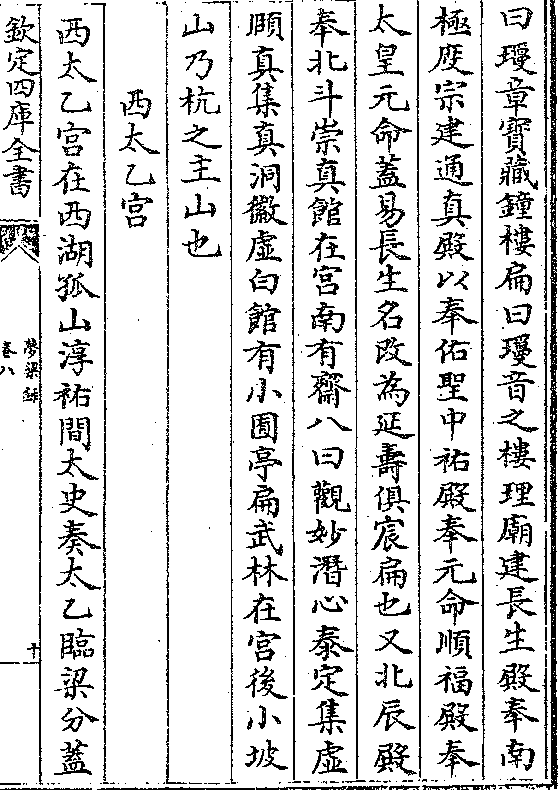 曰瓊章寶藏鐘樓扁曰瓊音之樓理廟建長生殿奉南
極度宗建通真殿以奉佑聖中祐殿奉元命順福殿奉
太皇元命蓋易長生名改為延壽俱宸扁也又北辰殿
奉北斗崇真館在宮南有齋八曰觀妙潛心泰定集虛
頤真集真洞微虛白館有小圃亭扁武林在宮後小坡
山乃杭之主山也
西太乙宮
西太乙宮在西湖孤山淳祐間太史奏太乙臨梁分蓋
欽定四庫全書
夢梁錄
卷八
十